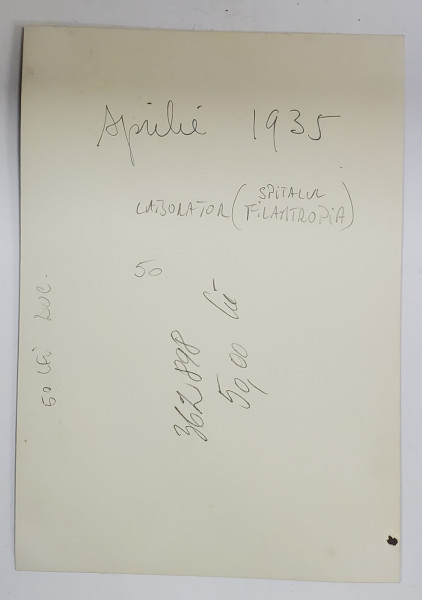 Aprilie 1935
LABORATOR (SPITALUL FILANTROPIA)
50
50 lei BUC.
362898
50,00 lei